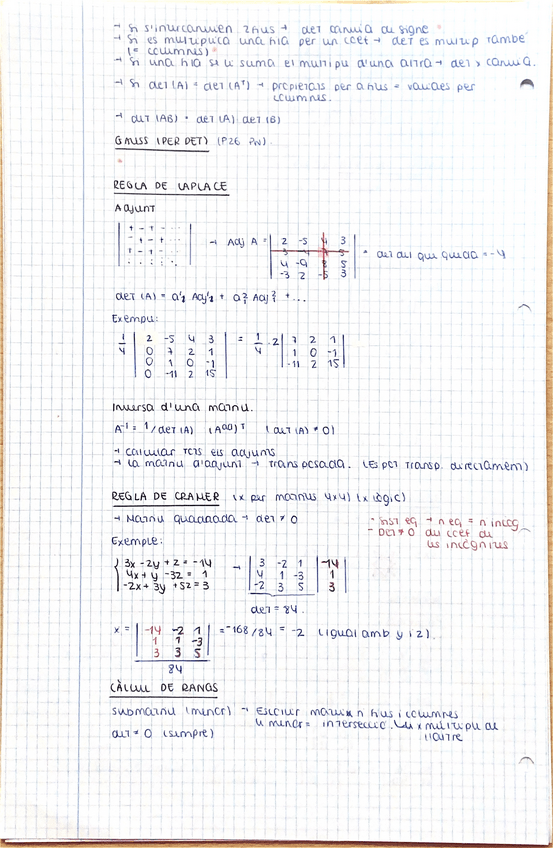 → Si s'intercanvien 2 files → det canvia de signe
→ Si es multiplica una fila per un ccet → det es multip també
(= columnes)
→ Si una fila se li suma el multiple d'una altra → det x canvia.
→ Si det (A) = det (Aᵀ) → propietats per a files = vàlides per
columnes.
→ det (AB) = det (A) det (B)
GAUSS (PER DET) (P26 PW)
REGLA DE LAPLACE
Adjunt
+ - + -
- + -
+ -
→ Adj A = | 2 -5 4 3 |
4 -9 5
-3 2 3
det del que queda = -4
det (A) = Adj + Adj + ...
Exemple:
1/4 | 2 -5 4 3 | = 1/4 · 2 | 7 2 1 |
0 7 2 1 | 1 0 -1
0 1 0 -1 | -11 2 15
0 -11 2 15
Inversa d'una matriu.
A⁻¹ = 1/det (A) (Aᵃᵈʲ)ᵀ (det (A) ≠ 0)
→ calcular tots els adjunts
→ la matriu d'adjunt → transposada. (Es pot transp. directament)
REGLA DE CRAMER (x per matrius 4x4) (x lògic)
→ Matriu quadrada → det ≠ 0
- Sist eq → n eq = n incog
- Det ≠ 0 del ccet de
les incògnites
Exemple:
3x - 2y + z = -14 → | 3 -2 1 | -14 |
4x + y - 3z = 1 | 4 1 -3 | 1
-2x + 3y + 5z = 3 | -2 3 5 | 3
det = 84.
x = | -14 -2 1 | = -168/84 = -2 (igual amb y i z).
1 1 -3
3 3 5
84
CÀLCUL DE RANGS
submatriu (menor) → Escollir n files i columnes
menor = intersecció.
det ≠ 0 (sempre)